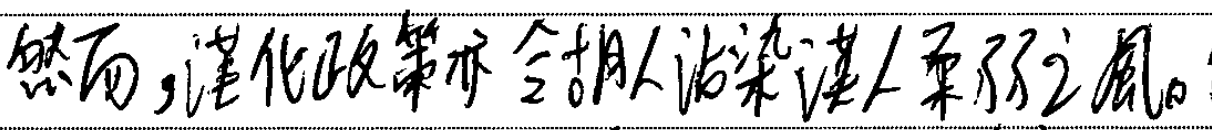 然而,漢化政策亦令胡人沾染漢人柔弱之風。